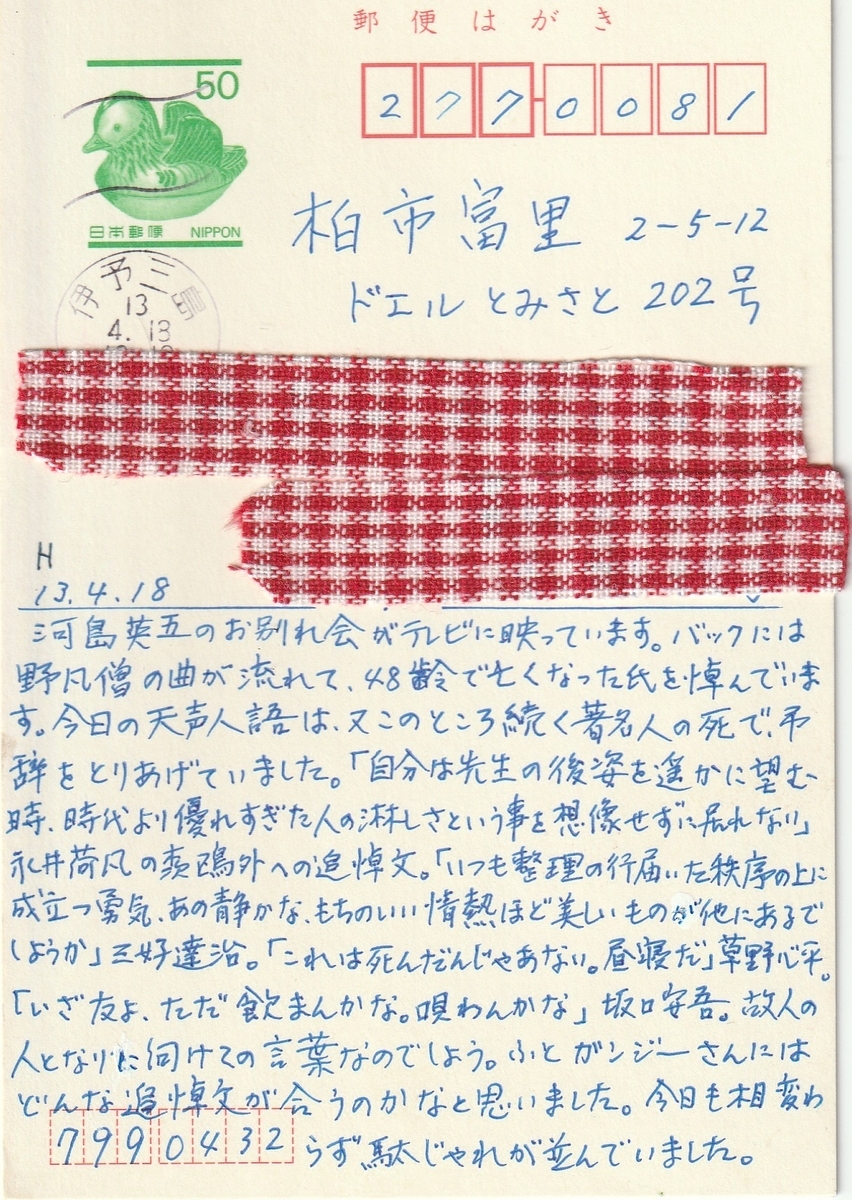 郵便はがき
50
日本郵便 NIPPON
277-0081
柏市富里 2-5-12
ドエルとみさと 202号
伊予三島
13
4.18
H
13.4.18
河島英五のお別れ会がテレビに映っています。バックには
野风僧の曲が流れて、48齢で亡くなった氏を悼んでいま
す。今日の天声人語は、又このところ続く著名人の死で、弔
辞をとりあげていました。「自分は先生の後姿を遥かに望む
時、時代より優れすぎた人の淋しさという事を想像せずに居れない」
永井荷风の森鴎外への追悼文。「いつも整理の行届いた秩序の上に
成立つ勇気、あの静かな、もちのいい情熱ほど美しいものが他にあるで
しょうか」三好達治。「これは死んだんじゃあない。昼寝だ」草野心平。
「いざ友よ、ただ飲まんかな。唄わんかな」坂口安吾。故人の
人となりに向けての言葉なのでしょう。ふとガンジーさんには
どんな追悼文が合うのかなと思いました。今日も相変わ
らず駄じゃれが並んでいました。
7990432